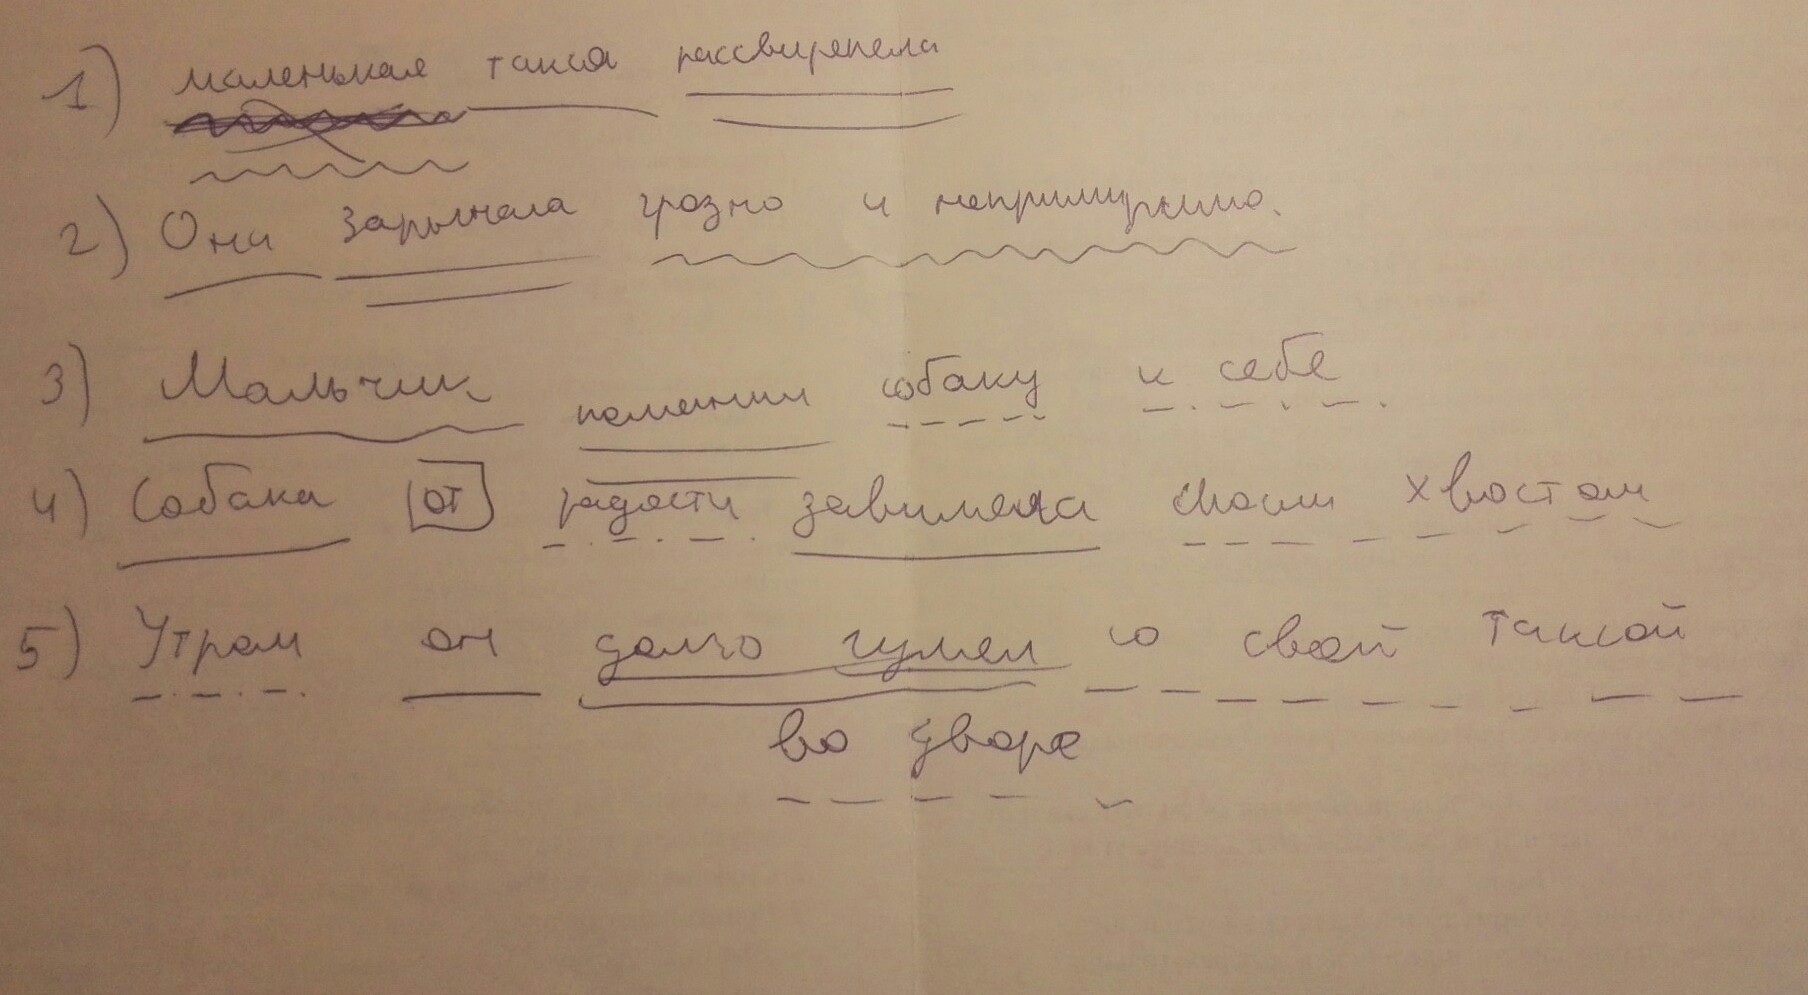 1) маленькая такса рассвирепела
2) Она зарычала грозно и непримиримо.
3) Мальчик поманил собаку к себе
4) Собака от радости завиляла своим хвостом
5) Утром он долго гулял со своей таксой
во дворе